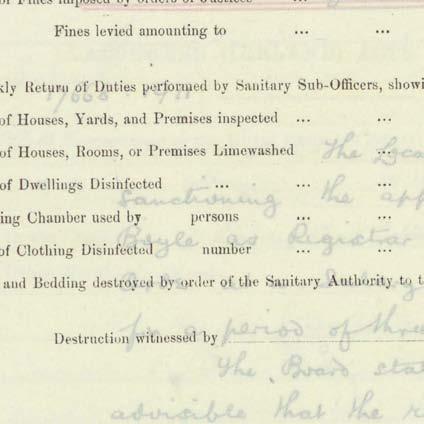 of Fines imposed by orders of Justices ...
Fines levied amounting to ... ...
kly Return of Duties performed by Sanitary Sub-Officers, showi
of Houses, Yards, and Premises inspected ... ...
of Houses, Rooms, or Premises Limewashed ...
The Loca
of Dwellings Disinfected ... ...
sanctioning the app
ing Chamber used by persons ... ...
Boyle as Registrar
of Clothing Disinfected number ... ...
and Bedding destroyed by order of the Sanitary Authority to t
for a period of three
Destruction witnessed by
The Board stat
advisible that the